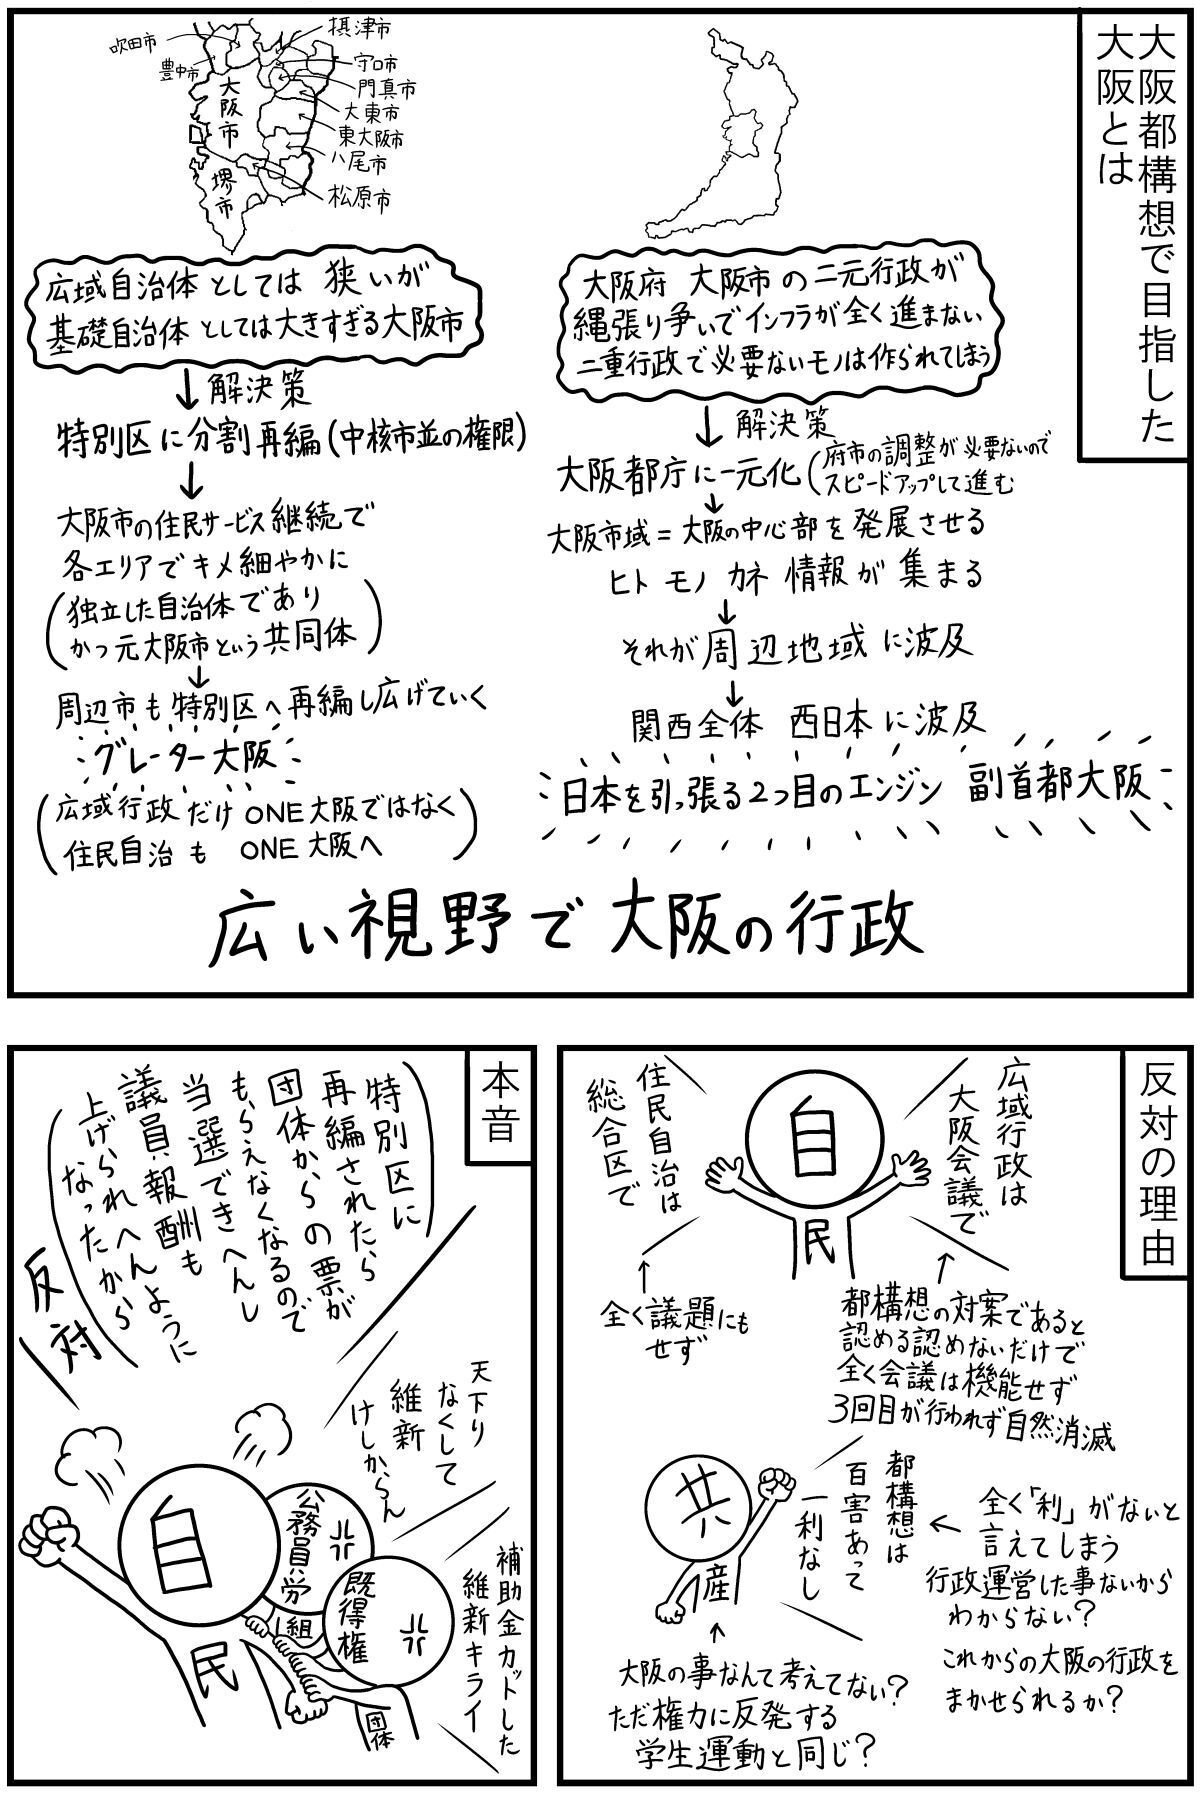 大阪都構想で目指した
大阪とは
大阪府 大阪市の二元行政が
縄張り争いでインフラが全く進まない
二重行政で必要ないモノは作られてしまう
↓解決策
大阪都庁に一元化(府市の調整が必要ないので
スピードアップして進む
↓
大阪市域=大阪の中心部を発展させる
ヒト モノ カネ 情報が集まる
↓
それが周辺地域に波及
↓
関西全体 西日本に波及
日本を引っ張る2つ目のエンジン 副首都大阪
吹田市
豊中市
摂津市
守口市
門真市
大東市
東大阪市
八尾市
松原市
大阪市
堺市
広域自治体としては 狭いが
基礎自治体としては大きすぎる大阪市
↓解決策
特別区に分割再編(中核市並の権限)
↓
大阪市の住民サービス継続で
各エリアでキメ細やかに
(独立した自治体であり
かつ元大阪市という共同体)
↓
周辺市も特別区へ再編し広げていく
グレーター大阪
(広域行政だけONE大阪ではなく
住民自治も ONE大阪へ)
広い視野で大阪の行政
反対の理由
広域行政は
大阪会議で
住民自治は
総合区で
自
民
↑
都構想の対案であると
認める認めないだけで
全く会議は機能せず
3回目が行われず自然消滅
↑
全く議題にも
せず
都構想は
百害あって
一利なし
共
産
←
全く「利」がないと
言えてしまう
行政運営した事ないから
わからない?
これからの大阪の行政を
まかせられるか?
↑
大阪の事なんて考えてない?
ただ権力に反発する
学生運動と同じ?
本音
特別区に
再編されたら
団体からの票が
もらえなくなるので
当選できへんし
議員報酬も
上げられへんように
なったから
反対
天下り
なくして
維新
けしからん
補助金カットした
維新キライ
自
民
公務員労
組
既得権
団体